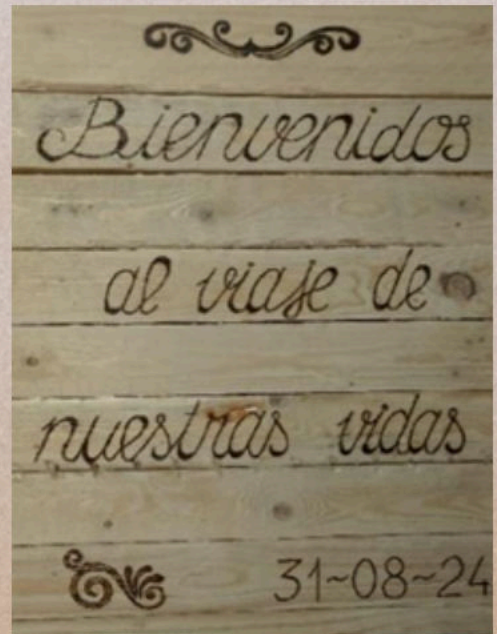 Bienvenidos
al viaje de
nuestras vidas
31~08~24